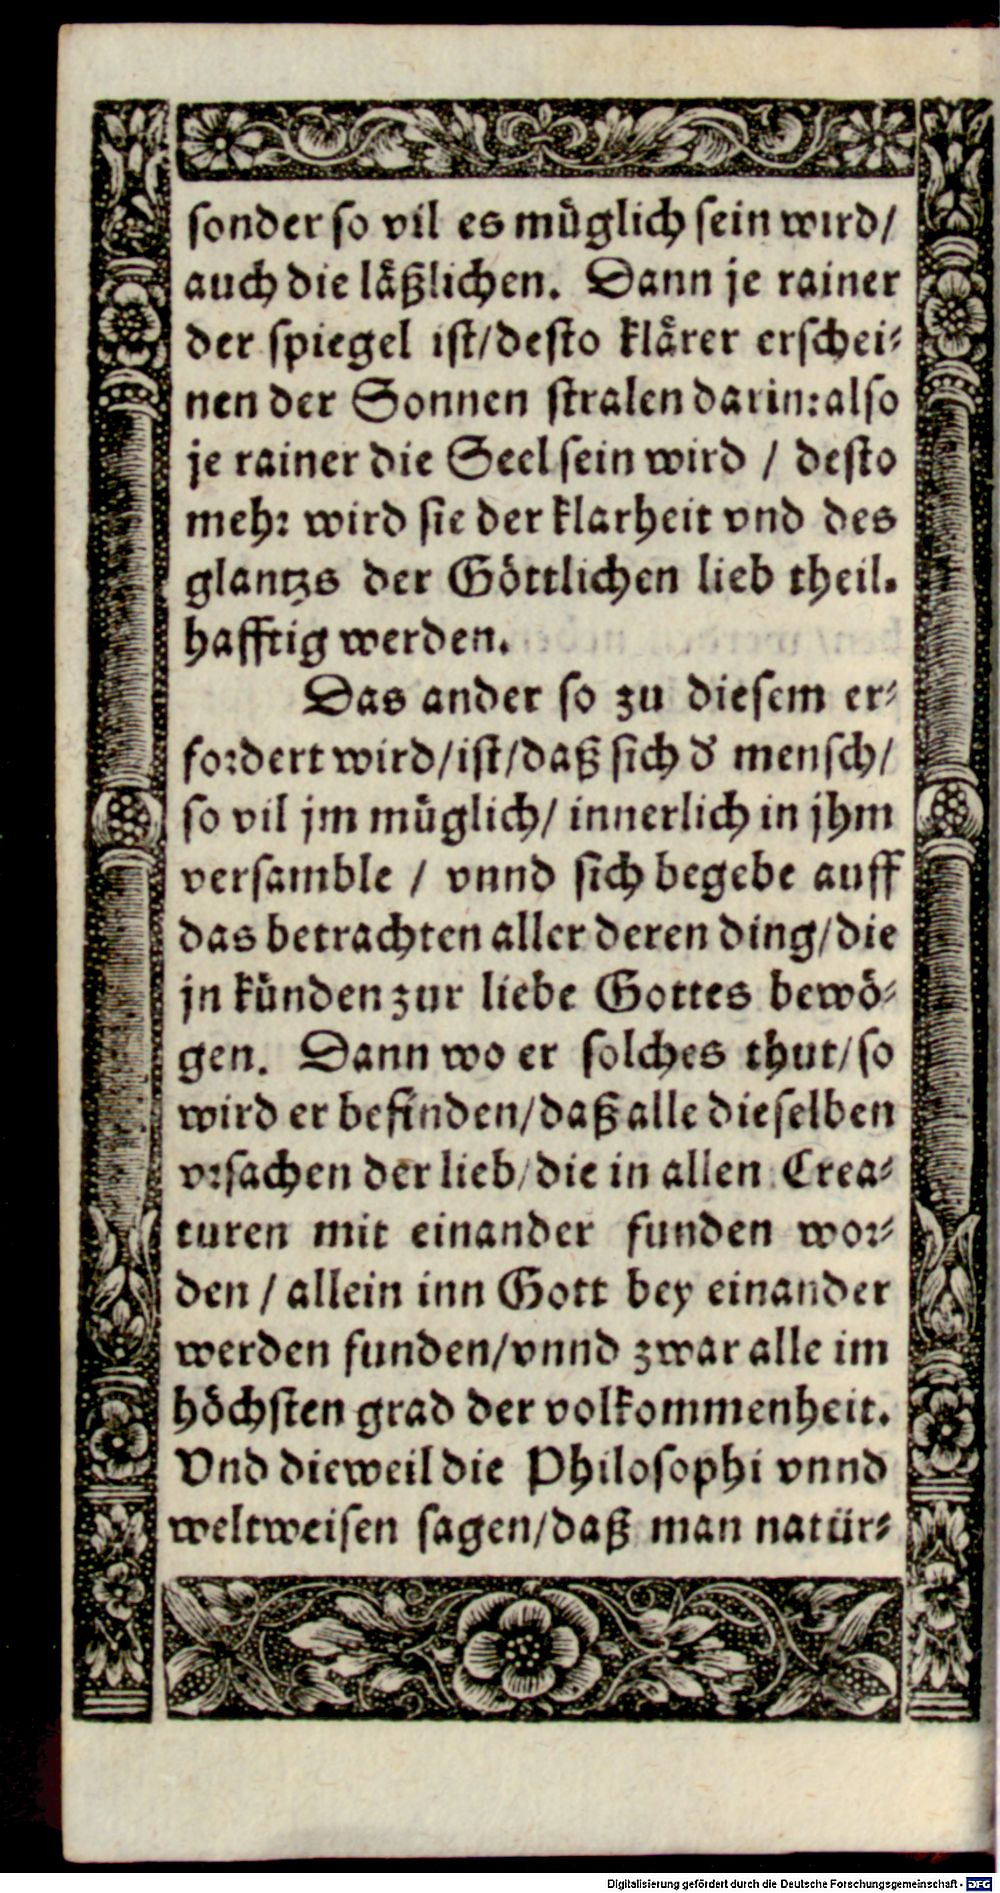 sonder so vil es müglich sein wird/
auch die läßlichen. Dann je rainer
der spiegel ist/desto klärer erschei⸗
nen der Sonnen stralen darin:also
je rainer die Seel sein wird / desto
mehr wird sie der klarheit vnd des
glantzs der Göttlichen lieb theil⸗
hafftig werden.
Das ander so zu diesem er⸗
fordert wird/ist/daß sich d̕ mensch/
so vil jm müglich/ innerlich in jhm
versamble / vnnd sich begebe auff
das betrachten aller deren ding/die
jn künden zur liebe Gottes bewö⸗
gen. Dann wo er solches thut/so
wird er befinden/daß alle dieselben
vrsachen der lieb/die in allen Crea⸗
turen mit einander funden wor⸗
den / allein inn Gott bey einander
werden funden/vnnd zwar alle im
höchsten grad der volkommenheit.
Vnd dieweil die Philosophi vnnd
weltweisen sagen/daß man natür⸗
Digitalisierung gefördert durch die Deutsche Forschungsgemeinschaft - DFG